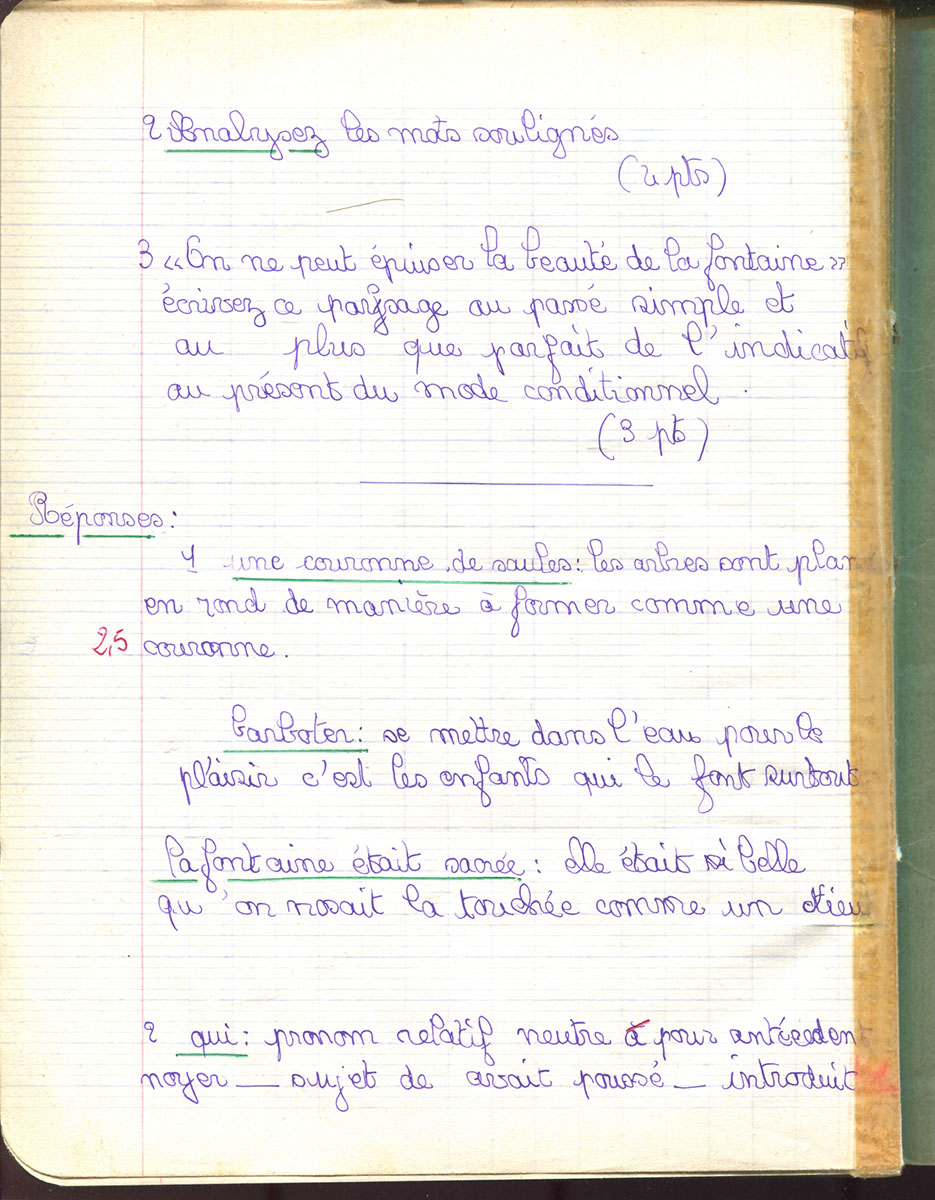 2 Analysez les mots soulignés
(2 pts)
3 «On ne peut épuiser la beauté de la fontaine»
écrivez ce passage au passé simple et
au plus que parfait de l'indicatif
au présent du mode conditionnel.
(3 pts)
Réponses:
1 une couronne de saules: les arbres sont plan
en rond de manière à former comme une
2,5 couronne.
barboter: se mettre dans l'eau pour le
plaisir c'est les enfants qui le font surtout
la fontaine était sacrée: elle était si belle
qu'on nosait la touchée comme un dieu
2 qui: pronom relatif neutre à pour antécédent
noyer — sujet de avait poussé — introduit